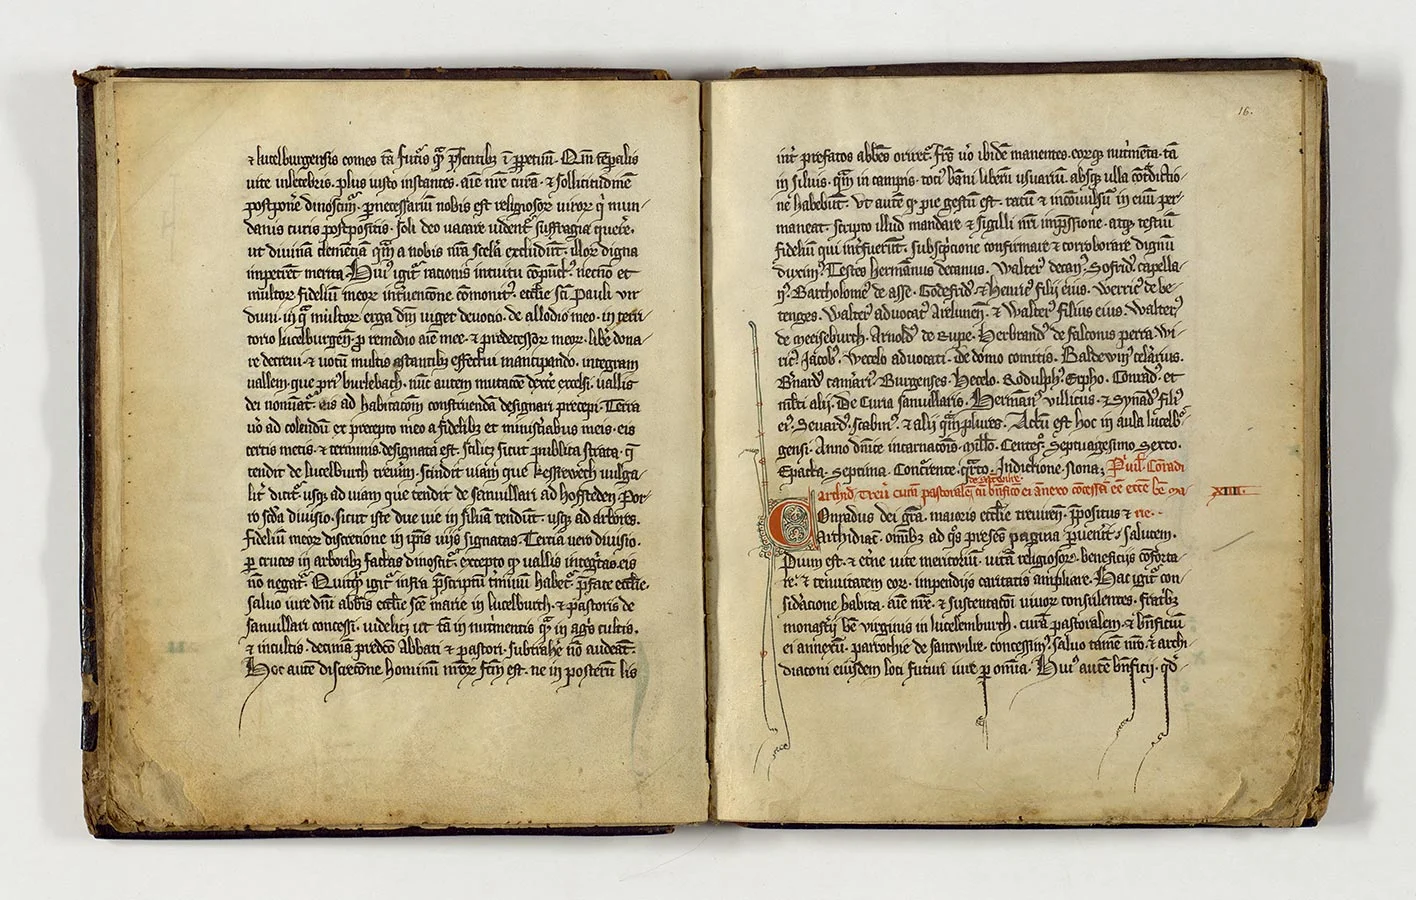 ⁊ lucelburgensis comes tā futis q̄ p̄sentibꝫ ī ꝑpetuū. Qm̄ tēpalis
uite illecebris. plus iusto instantes. aīe nr̄e curā. ⁊ sollicitudinē
postpone dinoscim᷒. ꝑnecessariū nobis est religiosoꝝ uiroꝝ q̇ mun-
danis curis postpositis. soli deo uacare uident᷑ suffragia quere.
ut diuinā clemēciā qm̄ a nobis nr̄a scelā excludūt. illoꝝ digna
impetrēt merita. Hui᷒ igit᷑ rationis intuitu cōpūct᷒. necnō et
multoꝝ fideliū meoꝝ int̄uencōne cōmonit᷒. ecctīe scī Pauli vir
duni. in q̄ multoꝝ erga dm̄ uiget deuocio. de allodio meo. in terri-
torio lucelburgēn. ꝓ remedio aīe mee. ⁊ predecessoꝝ meoꝝ. libe dona-
re decreui. ⁊ uotū multis astantibꝫ effectui mancipando. integram
uallem. que pri᷒ burlebach. nūc autem mutacōe dextre excelsi. uallis
dei nominat᷑. eis ad habitacōm construendā designari precepi. Terrā
uō ad colendū ex precepto meo a fidelibꝫ et ministrabus meis. eis
certis metis. ⁊ terminis designata est. scilicꝫ sicut publica strata. q̄
tendit de lucelburch treuim. scindit uiam que kestewech uulga-
lit᷑ dicit᷑. usqꝫ ad uiam que tendit de sanuillari ad hofsteden. Por-
ro scda diuisio. sicut iste due uie in siluā tendūt. usqꝫ ad arbores.
fideliū meoꝝ discretione in ipīs uijs signatas. Tercia uero diuisio.
ꝑ cruces in arboribꝫ factas dinoscit᷑. excepto ꝙ uallis integritas. eis
nō negat᷑. Quicqꝫ igit᷑ infra p̄scriptū t̄minū habet᷑. p̄fate ecctīe.
saluo iure dnī abbīs ecctīe scē marie in lucelburch. ⁊ pastoris de
sanuillari concessi. uidelicꝫ ut tā in nut̄mentis q̄ in agris cultis.
⁊ incultis. decimā predco Abbati ⁊ pastori. subtrahe nō audeāt.
Hoc autē discrecōne hominū nr̄oꝝ fcm̄ est. ne in posterū lis
16.
int̄ prefatos abbēs oriret᷑. Frs uō ibidē manentes. eoꝝqꝫ nut̄mēta. tā
in siluis. qm̄ in campis. toci᷒ bāni liberū usuariū. absqꝫ ulla cōtradictio-
ne habebūt. Vt autē ꝙ pie gestū est. ratū ⁊ incōuulsū in euū per-
maneat. scripto illud mandare ⁊ sigilli nr̄i imp̄ssione. atqꝫ testiū
fideliū qui int̄fuerūt. subscrp̄cione confirmare ⁊ corroborare dignū
duxim᷒. Testes hermānus decanus. Walter᷒ decan᷒. Sofrid᷒. capella-
n᷒. Bartholome᷒ de asse. Godefrid᷒. ⁊ henric᷒ filij eius. Werric᷒ de be-
tenges. Walter᷒ aduocat᷒ Arelunen̄. ⁊ Walter᷒ filius eius. Walter᷒
de meiseburch. Arnold᷒ de Rupe. Herbrand᷒ de falconis petra. Wi-
ric᷒. Jacob᷒. Wecelo aduocati. de domo comitis. Baldewin᷒ celārius.
Bn̄ard᷒ camrari᷒. Burgenses. Hecelo. Rodulph᷒. Erpho. Conrad᷒. et
mlti alij. De Curia sanuillario. Herman᷒ villicus. ⁊ Synad᷒ fili᷒
ei᷒. Seuard᷒. scabini᷒. ⁊ alij qm̄plures. Actū est hoc in aula lucelb᷒o-
gensi. Anno dnīce incarnacōnis. millo. Centeso. Septuagesimo Sexto.
Epacta. Septima. Concrente. qrto. Indictione. Nona; Puil. Conradi
archid. Treū cum pastoralē. cū bn̄fico ei anexo cōcessā eē ecctē bē ma- XIIII.
Conradus dei grā. maioris ecctīe treuiren̄. p̄positus ⁊ rie..
Archidiac᷒. omībꝫ ad q̄s presēs pagina ꝑuen̄it. salutem.
Pium est. ⁊ et̄ne uite meritoriū. uitā religiosoꝝ. beneficijs cōforta-
re. ⁊ tenuitatem eoꝝ. impendijs caritatis ampliare. Hac igit᷑ con-
sid̄acione habita. aīe nr̄e. ⁊ sustentacōi uiuoꝝ consulentes. fratribꝫ
monasterij bē virginis in lucelemburch. curā pastoralem. ⁊ bn̄ficiū
ei annexū. parrochie de santwilre. concessim᷒. saluo tamē nr̄o. ⁊ archi-
diaconi eiusdem loci futuri iure ꝑ omīa. Hui᷒ autē bn̄ficij. qd̄